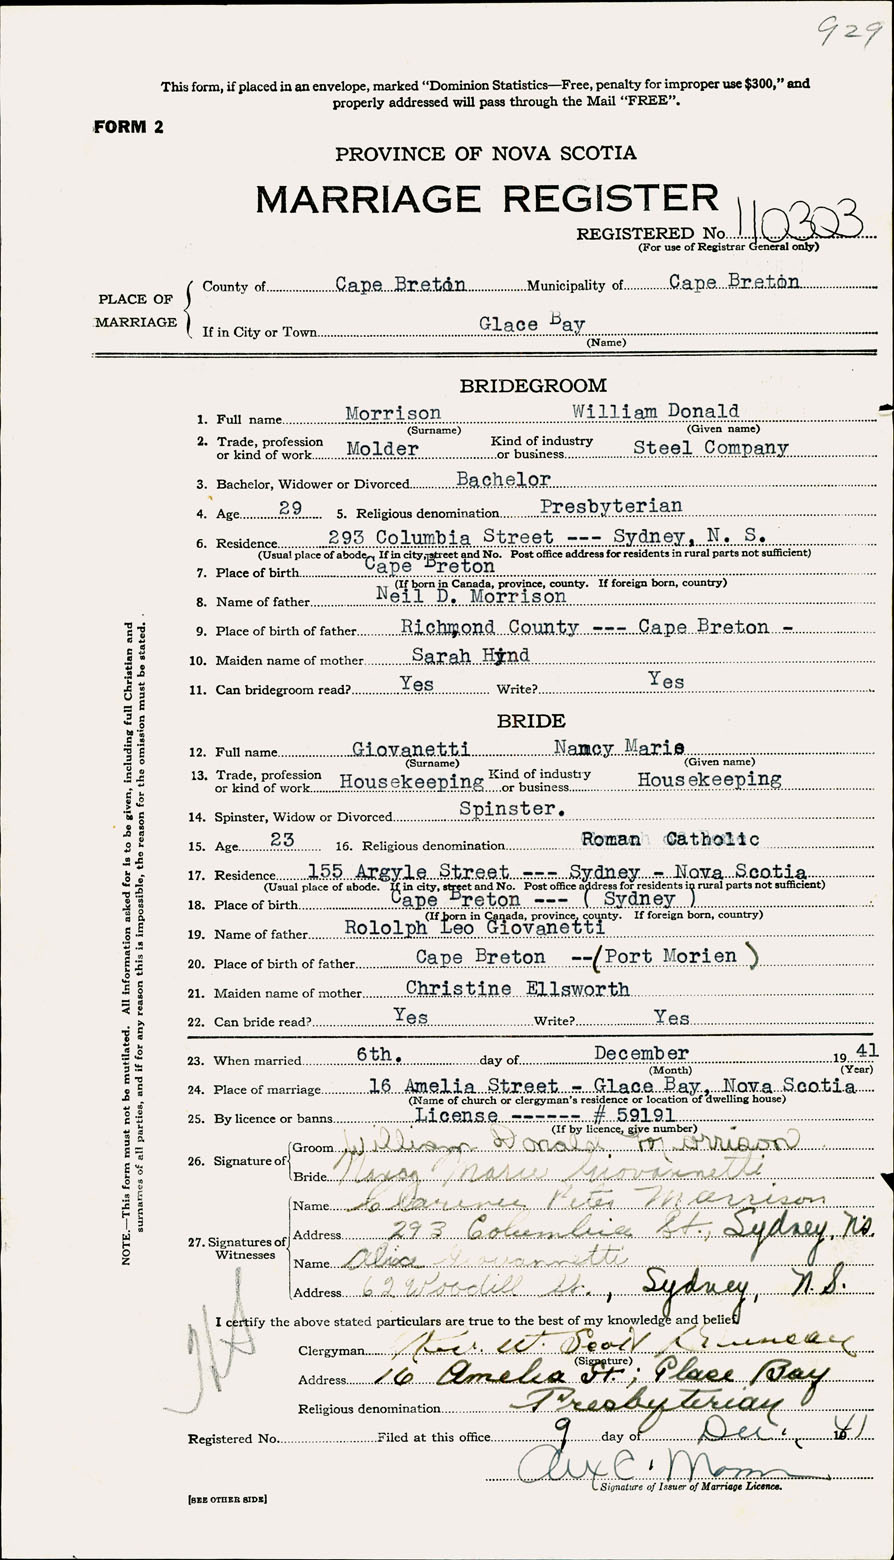 929
This form, if placed in an envelope, marked "Dominion Statistics—Free, penalty for improper use $300," and
properly addressed will pass through the Mail "FREE".
FORM 2
PROVINCE OF NOVA SCOTIA
MARRIAGE REGISTER
REGISTERED No. 110303
(For use of Registrar General only)
PLACE OF MARRIAGE
County of Cape Breton Municipality of Cape Breton
If in City or Town Glace Bay
(Name)
BRIDEGROOM
1. Full name Morrison William Donald
(Surname) (Given name)
2. Trade, profession or kind of work Molder Kind of industry or business Steel Company
3. Bachelor, Widower or Divorced Bachelor
4. Age 29 5. Religious denomination Presbyterian
6. Residence 293 Columbia Street --- Sydney, N. S.
(Usual place of abode. If in city, street and No. Post office address for residents in rural parts not sufficient)
7. Place of birth Cape Breton
(If born in Canada, province, county. If foreign born, country)
8. Name of father Neil D. Morrison
9. Place of birth of father Richmond County --- Cape Breton -
10. Maiden name of mother Sarah Hynd
11. Can bridegroom read? Yes Write? Yes
BRIDE
12. Full name Giovanetti Nancy Marie
(Surname) (Given name)
13. Trade, profession or kind of work Housekeeping Kind of industry or business Housekeeping
14. Spinster, Widow or Divorced Spinster.
15. Age 23 16. Religious denomination Roman Catholic
17. Residence 155 Argyle Street --- Sydney - Nova Scotia
(Usual place of abode. If in city, street and No. Post office address for residents in rural parts not sufficient)
18. Place of birth Cape Breton --- ( Sydney )
(If born in Canada, province, county. If foreign born, country)
19. Name of father Rololph Leo Giovanetti
20. Place of birth of father Cape Breton --(Port Morien )
21. Maiden name of mother Christine Ellsworth
22. Can bride read? Yes Write? Yes
23. When married 6th. day of December 19 41
(Month) (Year)
24. Place of marriage 16 Amelia Street - Glace Bay, Nova Scotia
(Name of church or clergyman's residence or location of dwelling house)
25. By licence or banns License ------ # 59191
(If by licence, give number)
26. Signature of
Groom William Donald Morrison
Bride Nancy Marie Giovannetti
27. Signatures of Witnesses
Name Clarence Peter Morrison
Address 293 Columbia St., Sydney, N.S.
Name Alice Giovannetti
Address 62 Woodill St., Sydney, N.S.
I certify the above stated particulars are true to the best of my knowledge and belief
Clergyman Rev. W. Scott
(Signature)
Address 16 Amelia St.; Glace Bay
Religious denomination Presbyterian
Registered No. Filed at this office 9 day of Dec. 1941
Signature of Issuer of Marriage Licence.
[SEE OTHER SIDE]
NOTE.—This form must not be mutilated. All information asked for is to be given, including full Christian and
surnames of all parties, and if for any reason this is impossible, the reason for the omission must be stated.